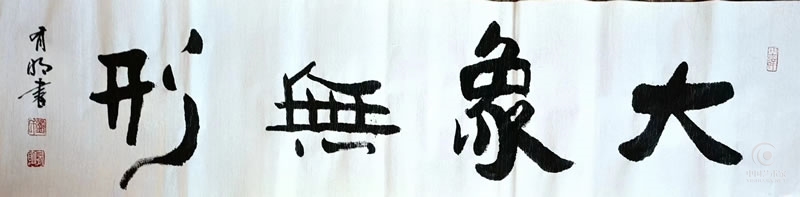 大象無形
有明書